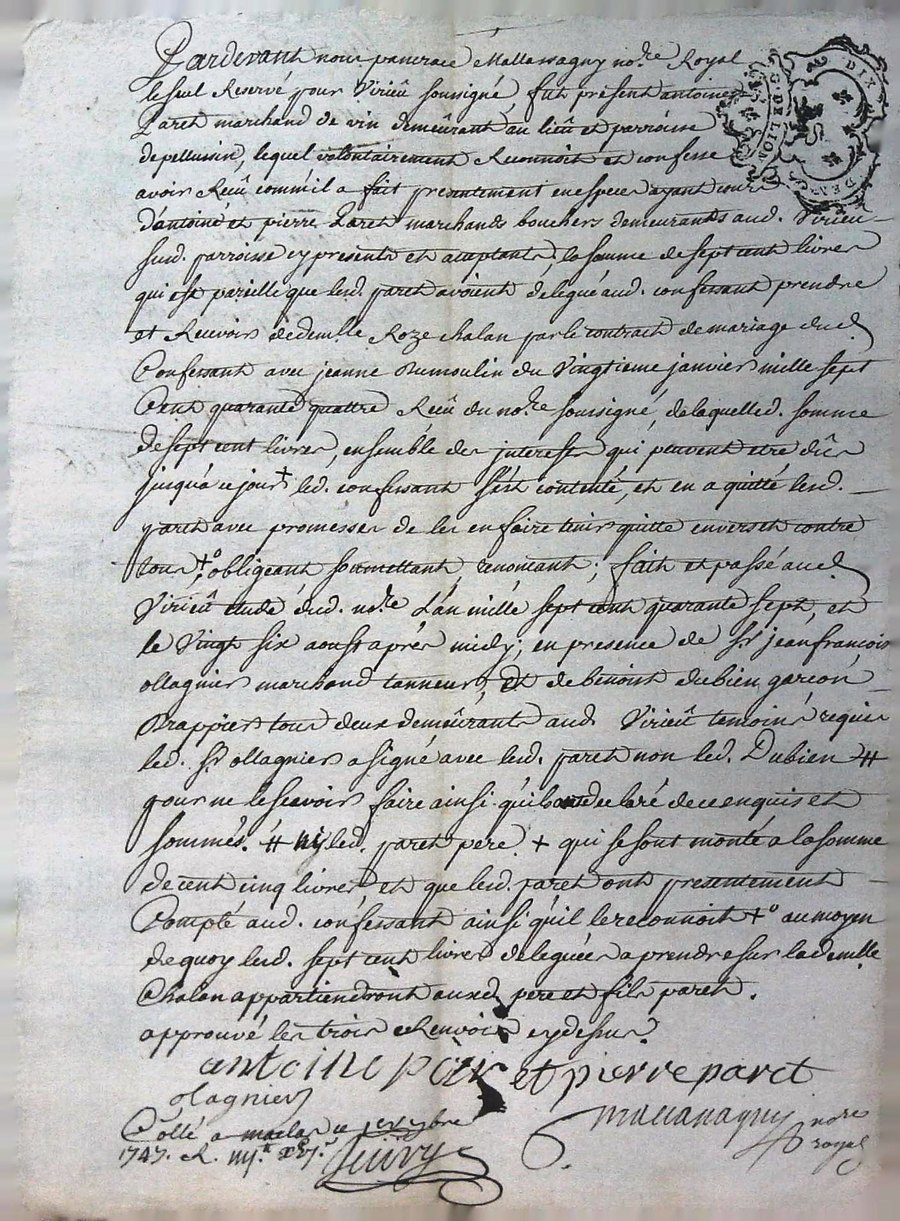 Pardevant nous pancrace Mallassagny no.re Royal
le seul Reservé pour Virieû soussigné, fut présent antoine
Paret marchand de vin demeûrant au lieû et parroisse
de pellussin, lequel volontairement Reconnoit et confesse
avoir Reçû comm'il a fait présentement en espece ayant cours
d'antoine et pierre Paret marchands bouchers demeurants aud. Virieu
susd. parroisse cy presents et acceptants, la somme de sept cent livres
qui est pareille que lesd. paret avoient delegué aud. confessant prendre
et Recevoir de demlle Roze chalan par le contract de mariage dud
Confessant avec jeanne Dumoulin du Vingtieme janvier mille sept
Cent quarante quattre Reçû du no.re soussigné, de laquelled. somme
de sept cent livres, ensemble des interests qui peuvent etre dûs
jusqu'a ce jour + led. confessant s'est contenté, et en a quitté lesd.
paret avec promesses de les en faire tenir quitte envers et contre
tous +o obligeant soumettant, renonceant; fait et passé aud
Virieû etude dud. no.re L'an mille sept cent quarante sept, et
le Vingt six aoust après midy; en presence de Sr. jean françois
ollagnier marchand tanneur, Et de benoit dubien garçon
Drappier tous deux demeûrants aud Virieû temoins requis
led. Sr. ollagnier a signé avec lesd. paret non led. Dubien #
pour ne le scavoir faire ainsi qu'ils ont declaré de ce enquis et
sommés. # ny led. paret pere + qui se sont monté a la somme
de cent cinq livres et que lesd. paret ont presentement
Compté aud. confessant ainsi qu'il le reconnoit +o au moyen
de quoy lesd. sept cent livres deleguées a prendre sur lad. demlle
Chalan appartiendront auxd pere et fils paret.
approuvé les trois Renvois cy dessus.
antoine paret et pierre paret
olagnier
Collé a maclas le per 7bre
1747. R.
mallassagny no.re
royal